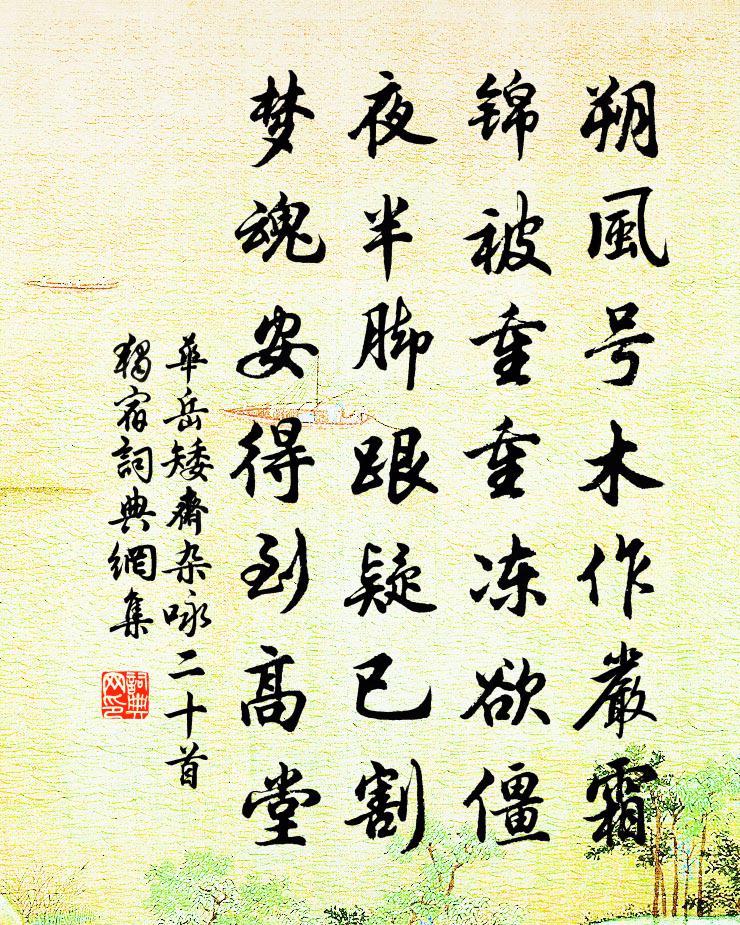 朔風号木作嚴霜
锦被重重冻欲僵
夜半脚跟疑已割
梦魂安得到高堂
華岳矮齋杂咏二十首
獨宿詞典網集
詞典
网印